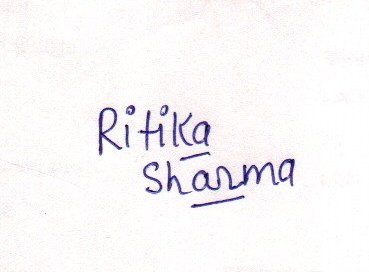 Ritika
Sharma